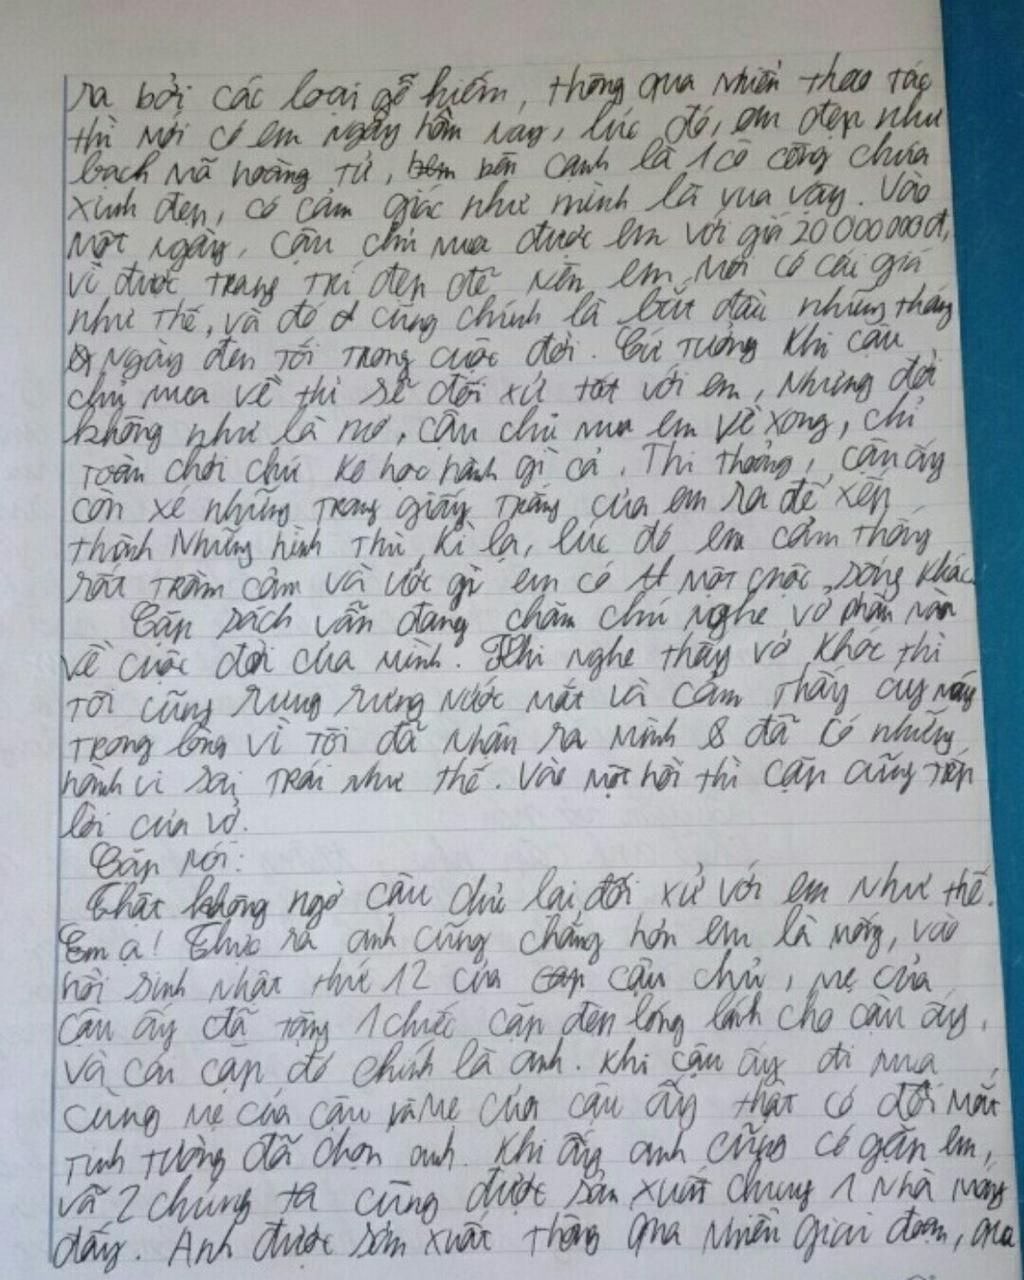 ra bởi các loại gỗ hiếm, thông qua nhiền thao tác
thì mới có em ngày hôm nay, lúc đó, em đẹp như
bạch mã hoàng tử, bên cạnh là 1 cô công chúa
xinh đẹp, có cảm giác như mình là vua vậy. Vào
một ngày, cậu chủ mua được em với giá 20 000 000đ,
vì được trang trí đẹp đẽ nên em mới có cái giá
như thế, và đó cũng chính là bắt đầu những tháng
ngày đen tối trong cuộc đời. Cứ tưởng khi cậu
chủ mua về thì sẽ đối xử tốt với em, nhưng đời
không như là mơ, cậu chủ mua em về xong, chỉ
toàn chơi chứ ko học hành gì cả. Thi thoảng, cậu ấy
còn xé những trang giấy trắng của em ra để xếp
thành những hình thù kì lạ, lúc đó em cảm thấy
rất trầm cảm và ước gì em có một cuộc sống khác.
Cặp sách vẫn đang chăm chú nghe vở phàn nàn
về cuộc đời của mình. Khi nghe thấy vở khóc thì
tôi cũng rưng rưng nước mắt và cảm thấy áy náy
trong lòng vì tôi đã nhận ra mình đã có những
hành vi sai trái như thế. Vào một hồi thì cặp cũng tiếp
lời của vở.
Cặp nói:
Thật không ngờ cậu chủ lại đối xử với em như thế.
Em ạ! Thực ra anh cũng chẳng hơn em là mấy, vào
hồi sinh nhật thứ 12 của cậu chủ, mẹ của
cậu ấy đã tặng 1 chiếc cặp đen lóng lánh cho cậu ấy,
và cái cặp đó chính là anh. Khi cậu ấy đi mua
cùng mẹ của cậu và mẹ của cậu ấy thật có đôi mắt
tinh tường đã chọn anh. Khi ấy anh cũng có gặp em,
và 2 chúng ta cũng được sản xuất chung 1 nhà máy
đấy. Anh được sản xuất thông qua nhiều giai đoạn, qua